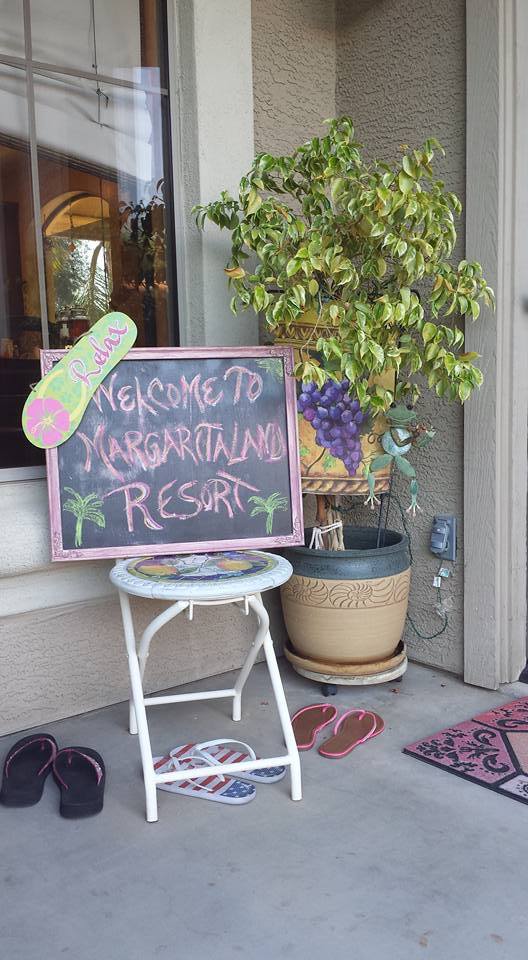 Relax
WELCOME TO
MARGARITALAND
RESORT